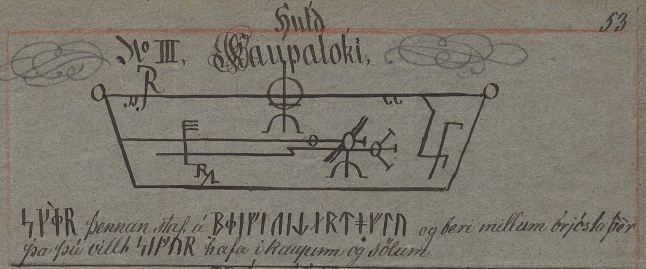 Huld
53
No III. Kaupaloki,
þennan staf á og beri millum brjósta þèr
þa þú villt ᛋᛁᚴᚢᚱ hafa i kaupum og sölum.